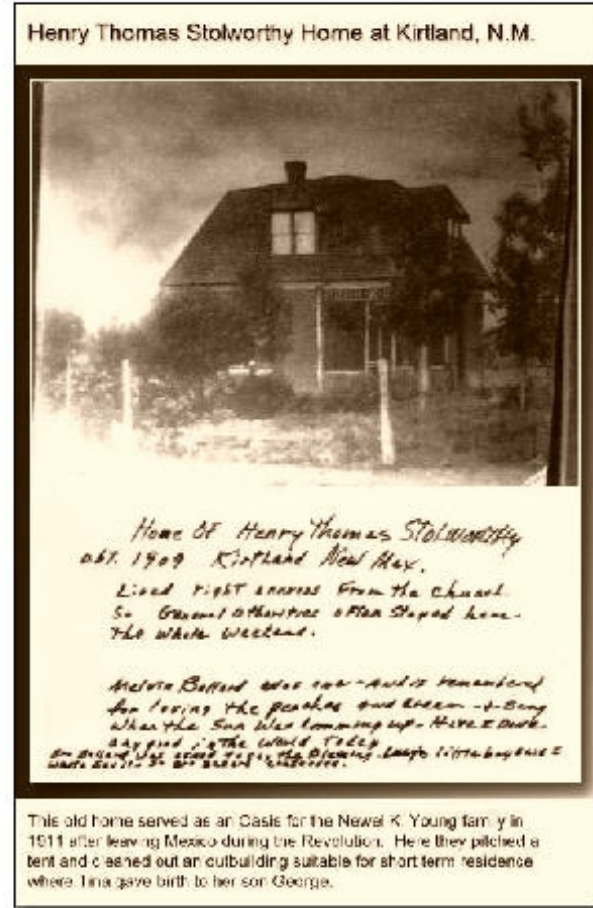 Henry Thomas Stolworthy Home at Kirtland, N.M.
Home Of Henry Thomas Stolworthy
abt. 1909 Kirtland New Mex.
Lived right across From the Church
So General Authorities often Stayed here
The Whole Weekend.
Melvin Ballard was one - and is remembered
for loving the peaches and cream - + Sang
When the Sun Was Comming up - Have I Done
Any good in The World Today
Bro Ballard Was asked to the Blessing little boy
This old home served as an Oasis for the Newel K. Young family in
1911 after leaving Mexico during the Revolution. Here they pitched a
tent and cleaned out an outbuilding suitable for short term residence
where Tina gave birth to her son George.